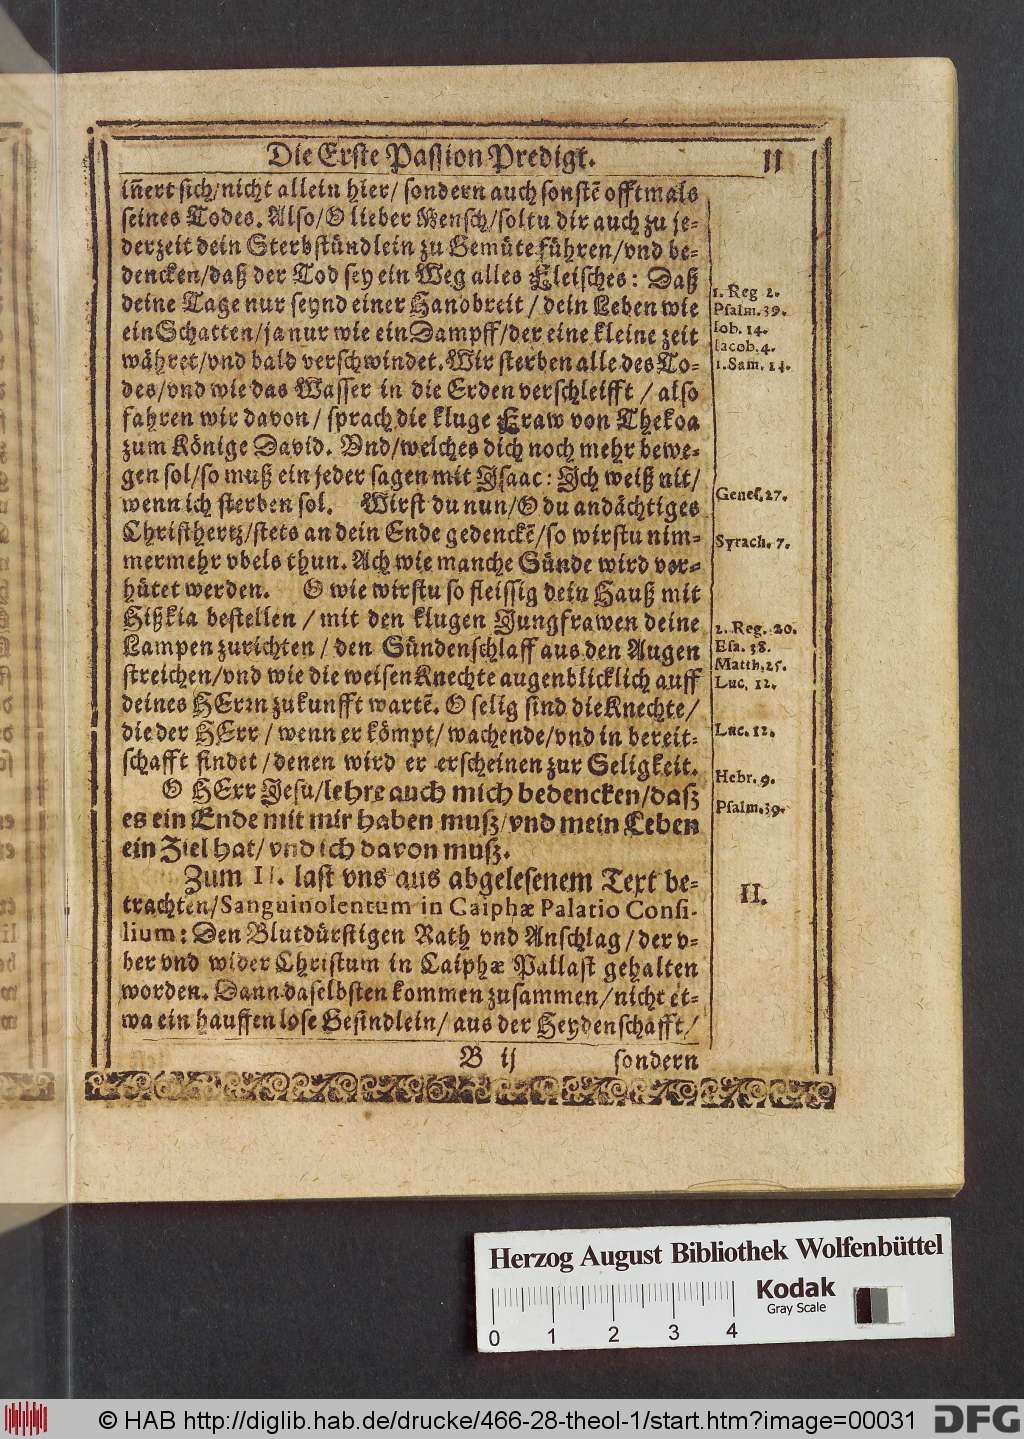 Die Erste Passion Predigt. 11
iñert sich/nicht allein hier/ sondern auch sonstẽ offtmals
seines Todes. Also/O lieber Mensch/soltu dir auch zu je-
derzeit dein Sterbstündlein zu Gemüte führen/vnd be-
dencken/daß der Tod sey ein Weg alles Fleisches: Daß
deine Tage nur seynd einer Handbreit/dein Leben wie
ein Schatten/ja nur wie ein Dampff/der eine kleine zeit
währet/vnd bald verschwindet. Wir sterben alle des To-
des/vnd wie das Wasser in die Erden verschleifft/also
fahren wir davon/ sprach die kluge Fraw von Thekoa
zum Könige David. Vnd/welches dich noch mehr bewe-
gen sol/so muß ein jeder sagen mit Isaac: Ich weiß nit/
wenn ich sterben sol. Wirst du nun/O du andächtiges
Christhertz/stets an dein Ende gedenckẽ/so wirstu nim-
mermehr vbels thun. Ach wie manche Sünde wird ver-
hütet werden. O wie wirstu so fleissig dein Hauß mit
Hißkia bestellen/mit den klugen Jungfrawen deine
Lampen zurichten/den Sündenschlaff aus den Augen
streichen/vnd wie die weisen Knechte augenblicklich auff
deines HErrn zukunfft wartẽ. O selig sind die Knechte/
die der HErr/wenn er kömpt/wachende/vnd in bereit-
schafft findet/denen wird er erscheinen zur Seligkeit.
O HErr Jesu/lehre auch mich bedencken/daß
es ein Ende mit mir haben muß/vnd mein Leben
ein Ziel hat/vnd ich davon muß.
Zum II. last vns aus abgelesenem Text be-
trachten/Sanguinolentum in Caiphæ Palatio Consi-
lium: Den Blutdürstigen Rath vnd Anschlag/der v-
ber vnd wider Christum in Caiphæ Pallast gehalten
worden. Dann daselbsten kommen zusammen/nicht et-
wa ein hauffen lose Gesindlein/aus der Heydenschafft/
B ij sondern
1. Reg 2.
Psalm. 39.
Iob. 14.
Iacob. 4.
1. Sam. 14.
Genes. 27.
Syrach. 7.
2. Reg. 20.
Esa. 38.
Matth. 25.
Luc. 12.
Luc. 12.
Hebr. 9.
Psalm. 39.
II.
Herzog August Bibliothek Wolfenbüttel
Kodak
Gray Scale
0 1 2 3 4
© HAB http://diglib.hab.de/drucke/466-28-theol-1/start.htm?image=00031
DFG